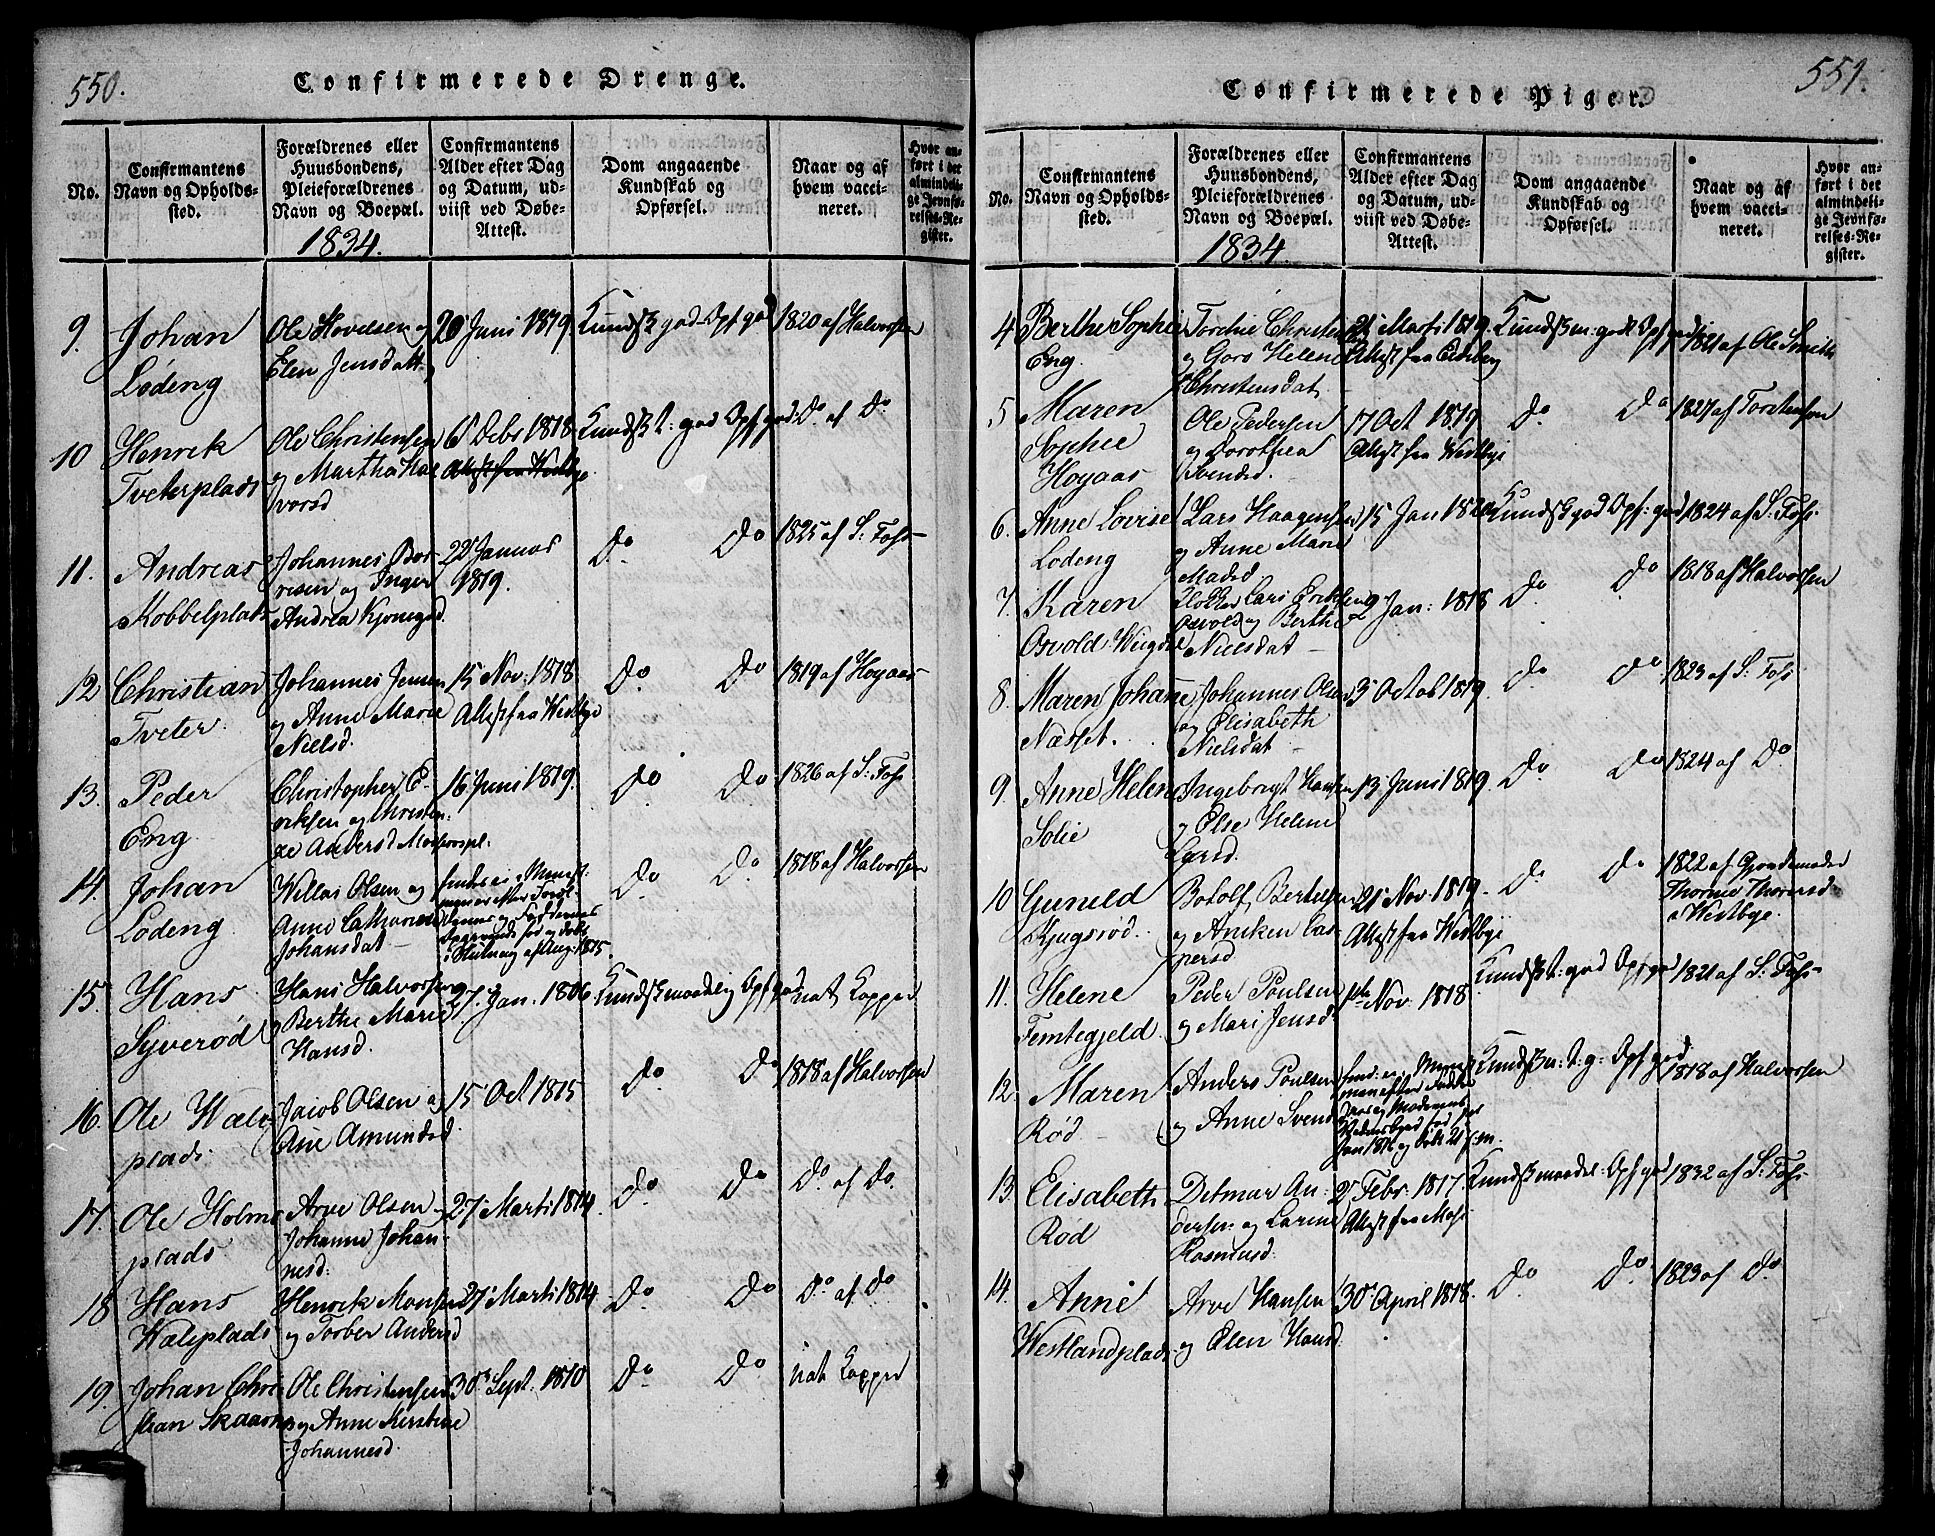 550.
Confirmerede Drenge.
No.
Confirmantens
Navn og Opholds-
sted.
Forældrenes eller
Huusbondens,
Pleieforældrenes
Navn og Boepæl.
1834.
Confirmantens
Alder efter Dag
og Datum, ud-
viist ved Døbe-
Attest.
Dom angaaende
Kundskab og
Opførsel.
Naar og af
hvem vacci-
neret.
Hvor an-
ført i det
almindeli-
ge Jevnfø-
relses-Re-
gister.
9.
Johan
Lødeng
Ole Hovelsen og
Elen Jensdatt.
20 Juni 1819.
Kundsk god Opf god
1820 af Halvorsen
10
Henrik
Tveterplads
Ole Christensen
og Martha Hal
vorsd
6 Debr 1818
Attest fra Westbye
Kundsk t: god Opf god
Do af Do
11.
Andreas
Kobbelplads
Johannes Bor-
resen og Inger
Andrea
22 Januar
1819.
Do Do
1825 af S: Foss
12
Christian
Tveter.
Johannes Jensen
og Anne Marie
Nielsd.
15 Nov. 1818
Attest fra Westbye
Do Do
1819 af Hogaas
13.
Peder
Eng
Christopher E-
riksen og Christen-
ze Andersd
16 Juni 1819.
Do Do
1826 af S: Foss
14.
Johan
Lødeng
Willas Olsen og
Anne Catharina
Johansdat
Do Do
1818 af Halvorsen
15.
Hans
Syverød
Hans Halvorsen og
Berthe Marie
Hansd.
27. Jan. 1806
Kundsk maadelig Opf god
nat Kopper
16.
Ole Wale
plads.
Jacob Olsen og
Ane Amundsd
15 Oct 1815
Do Do
1818 af Halvorsen
17.
Ole Holms
plads
Arve Olsen
Johanne Johan-
nesd.
27 Marti 1814.
Do Do
Do af Do.
18
Hans
Waleplads
Henrik Monsen
og Torber Andersd
27 Marti 1814
Do Do
Do af Do
19.
Johan Chri
stian Skaarn
Ole Christensen
og Anne Kirstine
Johannesd.
30 Sept. 1810
Do Do
nat Kopper
551.
Confirmerede Piger.
No.
Confirmantens
Navn og Opholds-
sted.
Forældrenes eller
Huusbondens,
Pleieforældrenes
Navn og Boepæl.
1834.
Confirmantens
Alder efter Dag
og Datum, ud-
viist ved Døbe-
Attest.
Dom angaaende
Kundskab og
Opførsel.
Naar og af
hvem vacci-
neret.
Hvor an-
ført i det
almindeli-
ge Jevnfø-
relses-Re-
gister.
4
Berthe Sophie
Eng.
Torchie Christen
og Goro Helene
Christensdat
Marti 1819.
Attest fra Eidsberg
Kundsk m: godt Opf god
1821 af Ole Smith
5
Maren
Sophie
Hogaas
Ole Pedersen
og Dorothea
Svendsd.
17 Oct 1819
Attest fra Westbye
Do Do
1827 af Torstensen
6.
Anne Lovise
Lødeng
Lars Haagensen
og Anne Marie
Madsd
15 Jan 1820
Kundsk god Opf: god
1824 af S: Foss
7.
Karen
Osvold
Klokker Lars Eriksen
Osvold og Berthe
Nielsdat
9 Jan: 1818
Do Do
1818 af Halvorsen
8.
Maren Johanne
Næsset.
Johannes Olsen
og Elisabeth
Nielsdat
5 Octob 1819.
Do Do
1823 af S: Foss
9.
Anne Helene
Solie
Ingebrigt Hansen
og Else Helene
Larsd.
13 Juni 1819
Do Do
1824 af Do
10
Guneld
Kjugsrød.
Botolf Bertelsen
og Aniken Cas-
persd
21 Nov. 1819.
Attest fra Westbye
Do Do
1822 af Gjordemoder
Thorine Thoresd
i Westbye.
11.
Helene
Femtegjeld
Peder Poulsen
og Mari Jensd
1ste Nov. 1818
Kundsk t: god Opf god
1821 af S: Foss
12.
Maren
Rød
Anders Poulsen
og Anne Svend
Kundsk m: t. g. Opf god
1818 af Halvorsen
13.
Elisabeth
Rød
Ditmar An-
dersen og Larine
Rasmusd.
2 Febr. 1817
Attest fra Moss
Kundsk maadel: Opf god
1832 af S: Foss
14.
Anne
Westlandplads
Arve Hansen
og Elen Hansd.
30 April 1818.
Do Do
1823 af Do